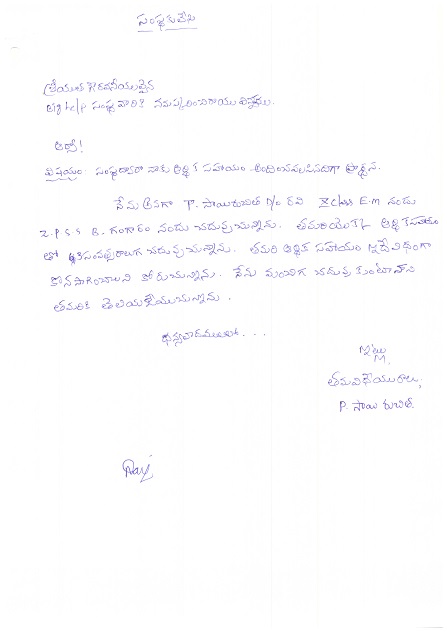 సంస్థకులేఖ
ప్రియమైన గౌరవనీయులైన
help సంస్థ వారికి నమస్కరించి రాయు విన్నపము.
ఆర్యా!
విషయం: సంస్థ ద్వారా నాకు ఆర్థిక సహాయం అందించవలసినదిగా ప్రార్థన.
నేను అనగా P. సాయిరుచిత D/o రవి X class E.M నందు
Z.P.S.S B. గంగారం నందు చదువుచున్నాను. తమరియొక్క ఆర్థికసహాయం
తో చదువుచున్నాను. తమరి ఆర్థిక సహాయం ఇదేవిధంగా
కొనసాగించాలని కోరుచున్నాను. నేను మంచిగ చదువుకుంటానని
తమరికి తెలియజేయుచున్నాను.
ధన్యవాదములతో...
ఇట్లు
తమవిధేయురాలు,
P. సాయి రుచిత.